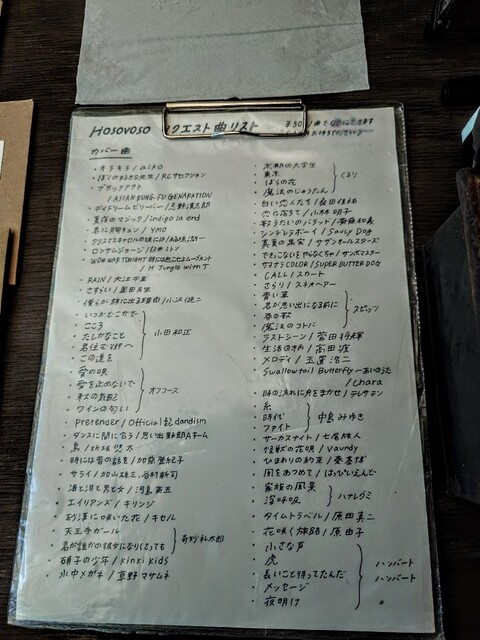 Hosovoso リクエスト曲リスト
カバー曲
・キラキラ/aiko
・ぼくの好きな先生/RCサクセション
・ブラックアウト
/ASIAN KUNG-FU GENERATION
・デイドリームビリーバー/忌野清志郎
・夏夜のマジック/indigo la end
・君に胸キュン/YMO
・クリスマスキャロルの頃には/稲垣潤一
・ロンサムジョージ
・WOW WAR TONIGHT 時には起こせよムーブメント
/H Jungle with T
・RAIN/大江千里
・さすらい/奥田民生
・僕らが旅に出る理由/小沢健二
・いつかどこかで
・こころ
・たしかなこと
小田和正
・この道を
・愛の唄
・愛を止めないで
オフコース
・秋の気配
・ワインの匂い
・Pretender/Official髭dandism
・ダンスに間に合う/思い出野郎Aチーム
・時には昔の話を/加藤登紀子
・サライ/加山雄三、谷村新司
・酒と泪と男と女/河島英五
・エイリアンズ/キリンジ
・砂漠に咲いた花/キセル
・天王寺ガール
・君が誰かの彼女になりくさっても
奇妙礼太郎
・硝子の少年/kinki kids
・水中メガネ/草野マサムネ
・京都の大学生
・東京
・ばらの花
・魔法のじゅうたん
くるり
・白い恋人たち/桑田佳祐
・恋におちて/小林明子
・歌うたいのバラッド/斉藤和義
・シンデレラボーイ/Saucy Dog
・真夏の果実/サザンオールスターズ
・できっこないをやらなくちゃ/サンボマスター
・サヨナラCOLOR/SUPER BUTTER DOG
・CALL/スカート
・さらり/スネオヘアー
・青い車
・君が思い出になる前に
・春の歌
・魔法のコトバ
スピッツ
・ラストシーン/菅田将暉
・生活の柄/高田渡
・メロディ/玉置浩二
・Swallowtail Butterfly～あいのうた
/Chara
・時の流れに身をまかせ/テレサテン
・糸
・時代
・ファイト
中島みゆき
・サーカスナイト/七尾旅人
・怪獣の花唄/Vaundy
・ひまわりの約束/秦基博
・風をあつめて/はっぴいえんど
・家族の風景
・深呼吸
ハナレグミ
・タイムトラベル/原田真二
・花咲く旅路/原由子
・小さな声
・虎
・長いこと待ってたんだ
・メッセージ
・夜明け
ハンバート
ハンバート